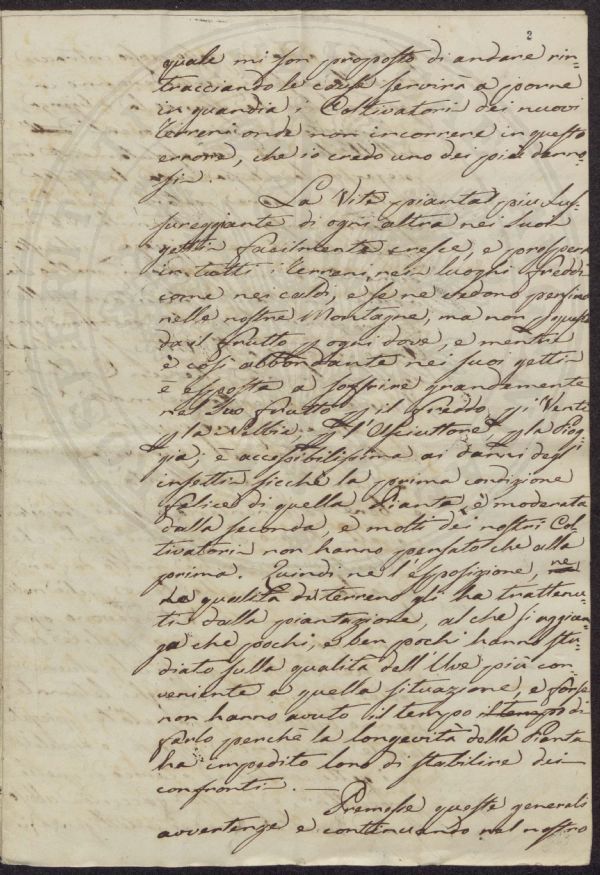 2
quale mi son proposto di andare rin=
tracciando le cause servirà a porre
in guardia i Coltivatori dei nuovi
terreni onde non incorrere in questo
errore, che io credo uno dei più danno=
si.
La Vite pianta più lus=
sureggiante di ogni altra nei suoi
getti facilmente cresce, e prospera
in tutti i terreni, nei luoghi freddi
come nei caldi, e se ne vedono persino
nelle nostre Montagne, ma non p questo
dà il frutto p ogni dove, e mentre
è così abbondante nei suoi getti
è esposta a soffrire grandemente
nel suo frutto p il freddo, p i Venti
p la Nebbia p l'Asciuttore p la Piog=
gia; è accessibilissima ai danni degl'
insetti sicchè la prima condizione
felice di quella Pianta è moderata
dalla seconda, e molti dei nostri Col=
tivatori non hanno pensato che alla
prima. Quindi nè l'esposizione, ne
la qualità di terreno gli ha trattenu=
ti dalla piantazione, al che si aggiun=
ga che pochi, e ben pochi hanno stu=
diato sulla qualità dell'Uve più con=
veniente a quella situazione, e forse
non hanno avuto il tempo il tempo di
farlo perchè la longevità della Pianta
ha impedito loro di stabilire dei
confronti. —
Premesse queste generali
avvertenze e continuando nel nostro